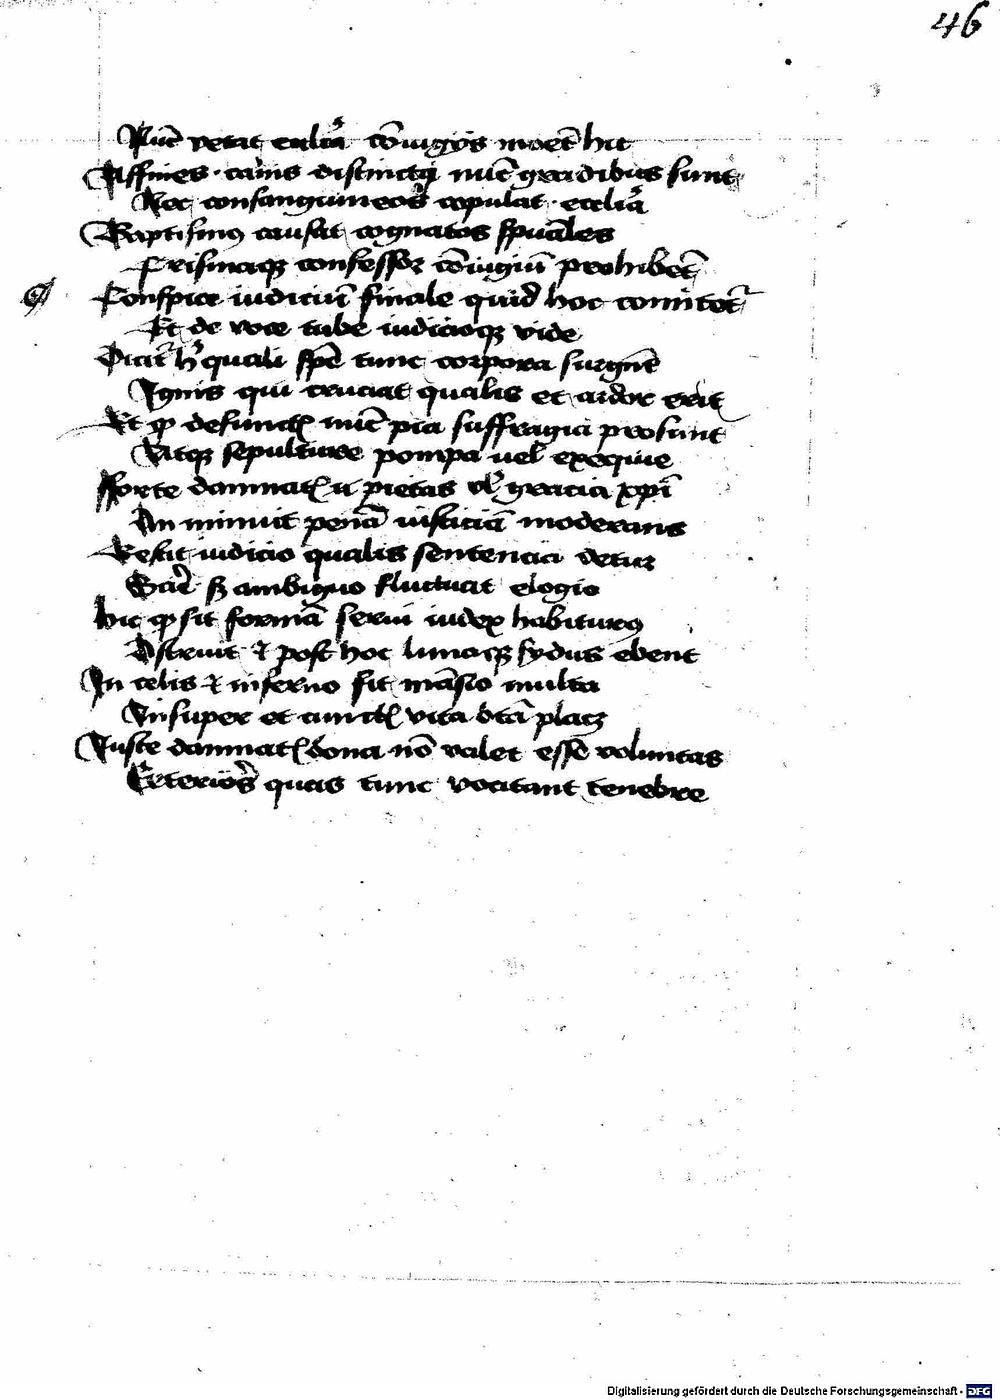 46
Nūc vetat eccl̄ia cōiugijs
Affines carnis distincti nūc gradibus sunt
Nec consanguineos copulat eccl̄ia
Baptismus causat cognatos sp̄uales
Crismaqꝫ confessor cōiugiū prohibet
Conspice iudiciū finale quid hoc comitet᷑
Et de voce tube iudicioqꝫ vide
quali spē tunc corpora surgūt
Ignis qui cruciat qualis et ardor erit
Et ꝙ defunctꝭ nūc pia suffragia prosunt
Atqꝫ sepulture pompa uel exequie
fforte damnatꝭ pietas gracia xp̄i
An minuit penā iusticiā moderans
Restit iudicio qualis sentencia detur
sꝫ ambiguo fluctuat elogio
hic ꝙ sit formā serui iudex habiturꝰ
Astruit ⁊ post hoc lunaqꝫ sydus ebent
In celis ⁊ inferno sit māsio multa
Insuper et cunctꝭ vita
Iuste damnatꝭ bona nō valet esse voluntas
quas tunc vocitant tenebre
Digitalisierung gefördert durch die Deutsche Forschungsgemeinschaft - DFG